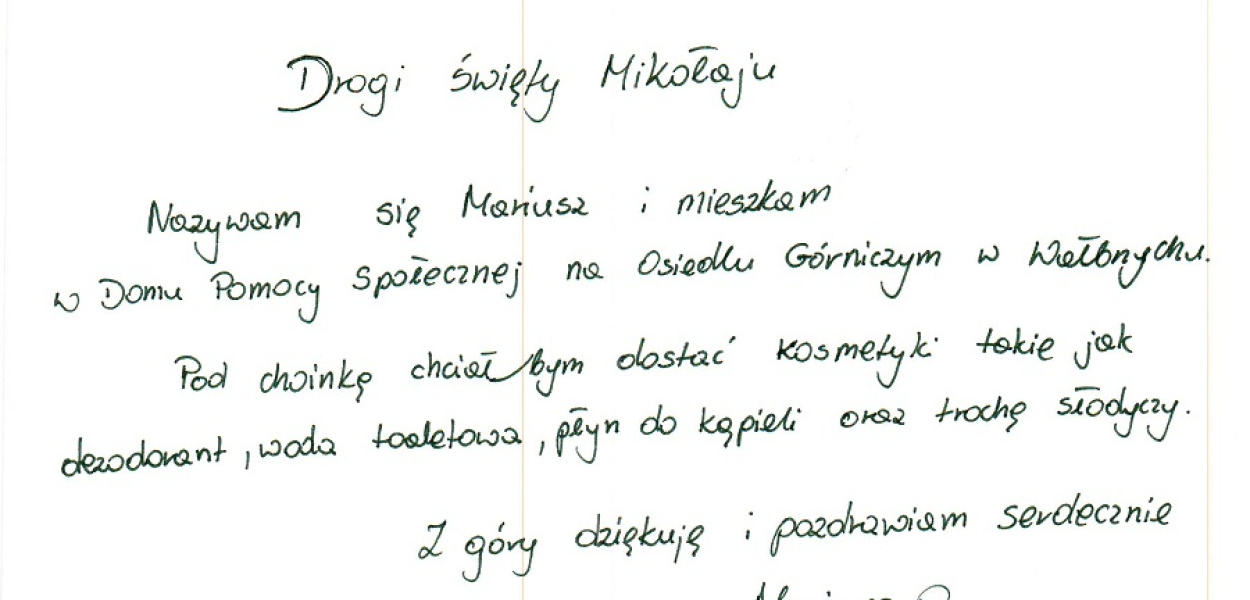 Drogi święty Mikołaju
Nazywam się Mariusz i mieszkam
w Domu Pomocy Społecznej na Osiedlu Górniczym w Wałbrzychu.
Pod choinkę chciał bym dostać kosmetyki takie jak
dezodorant, woda toaletowa, płyn do kąpieli oraz trochę słodyczy.
Z góry dziękuję i pozdrawiam serdecznie